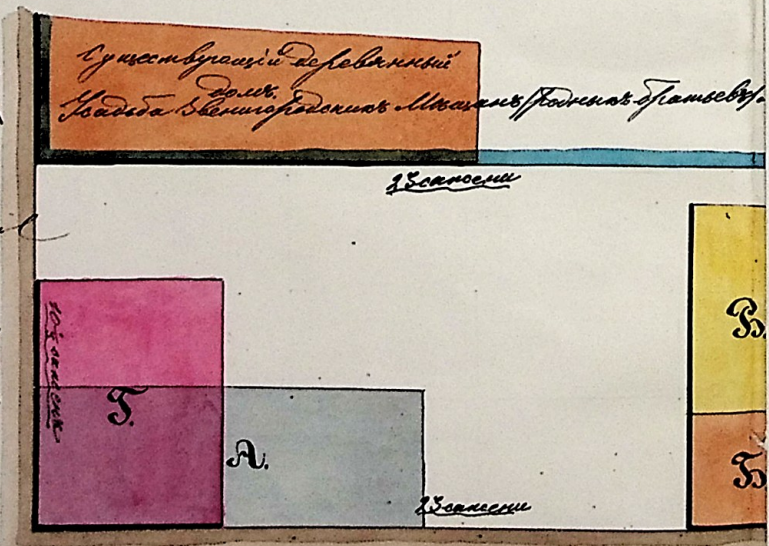 Существующій деревянный
домъ.
Усадьба Звенигородскихъ Мѣщанъ (родныхъ братьевъ).
23 сажени
В.
10½ сажень
Г.
А.
Б.
23 сажени